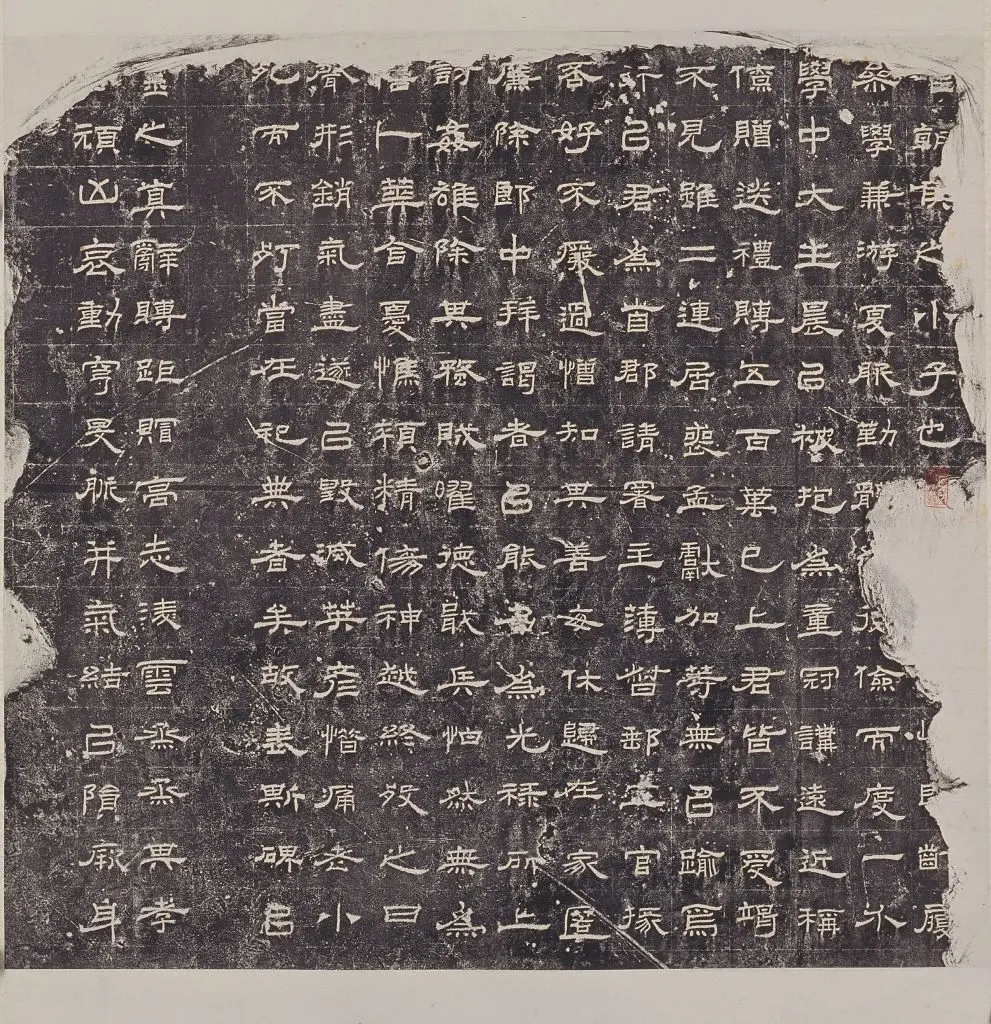 朝侯之小子也 即齒履
學兼游夏服勤 後儉而度一介
學中大主晨以被抱為童冠講遠近稱
僚贈送禮賻五百萬已上君皆不受竭
不見雖二連居喪孟獻加等無以踰焉
許以君為首郡請署主簿督郵五官掾
否好不廢過憎知其善每休歸在家匿
廉除郎中拜謁者以能名為光祿所上
訪姦雄除其蟊賊曜德戢兵怗然無為
害人華舍憂憔顇精傷神越終歿之日
骨形銷氣盡遂以毀滅英彥惜痛老小
死而不朽當在祀典者矣故表斯碑以
之真辭賻距賵高志淩雲烝烝其孝
頑凶哀動穹旻脈并氣結以隕厥身